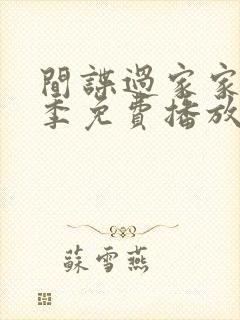 間諜過家家
季免費播放
蘇雪燕